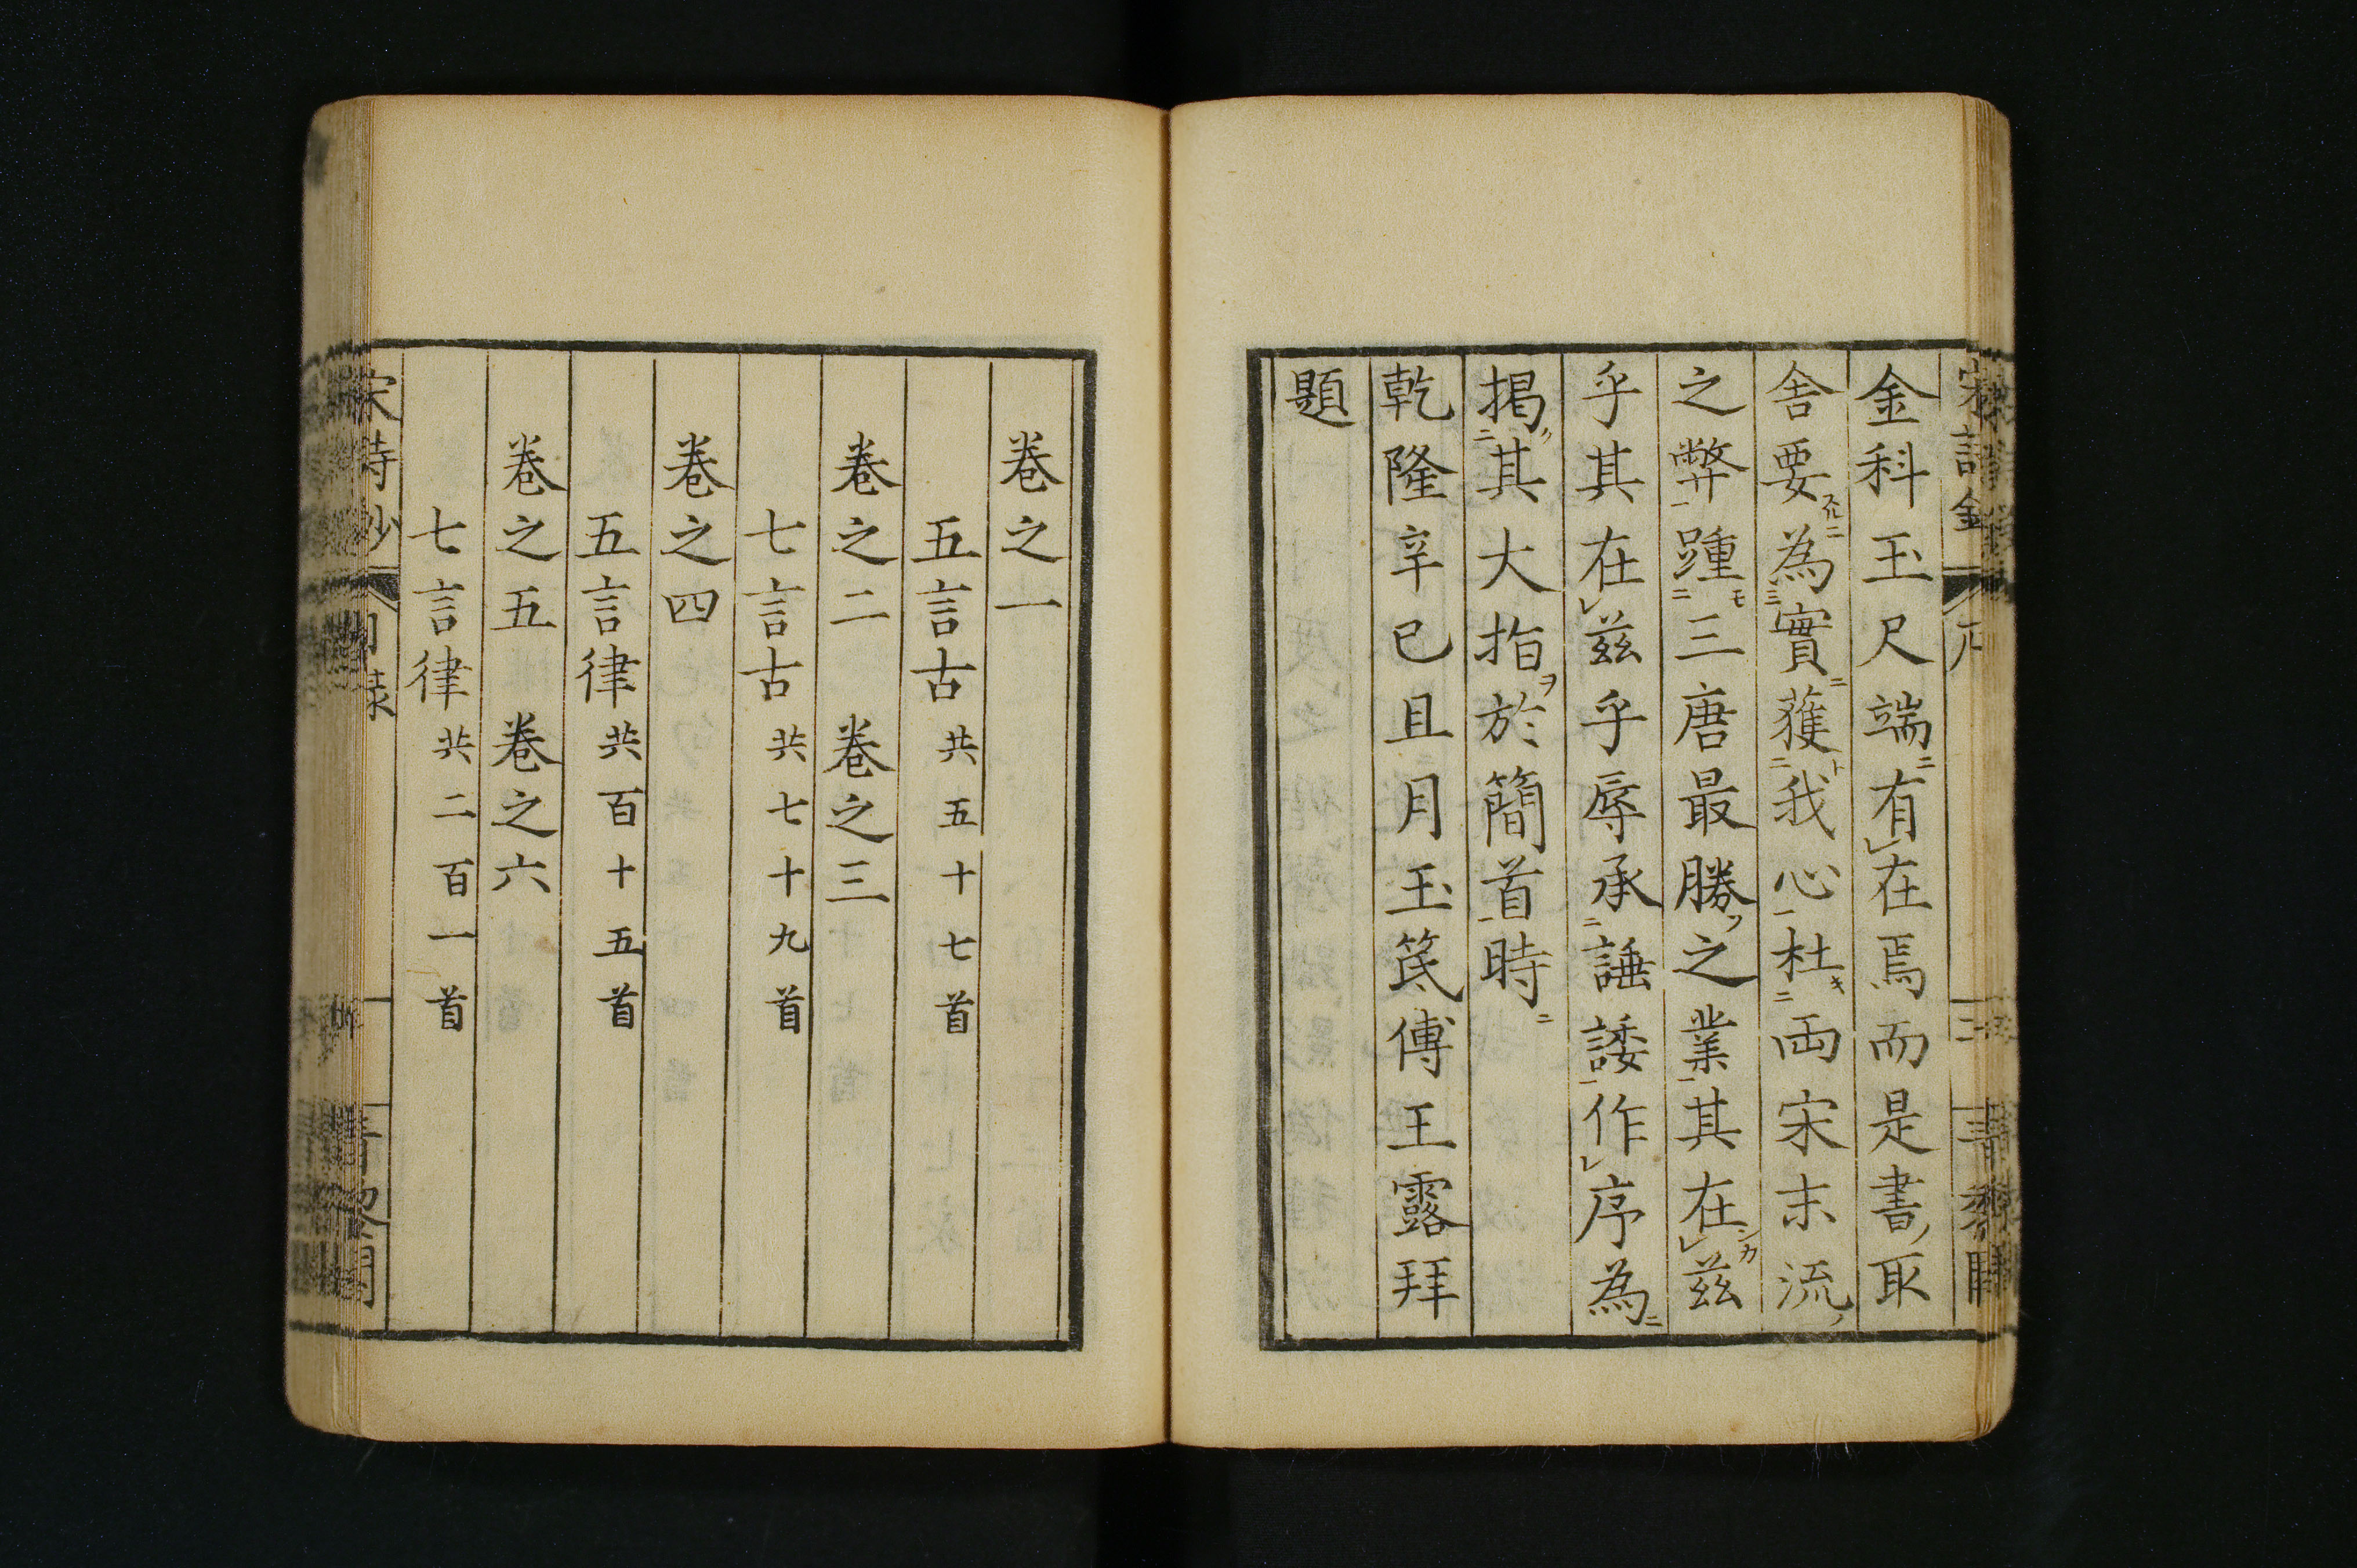 金科玉尺端有在焉而是書取
舎要為實獲我心杜両宋末流
之弊踵三唐最勝之業其在茲
乎其在茲乎辱承諈諉作序為
掲其大指於簡首時
乾隆辛巳且月玉笢傅王露拜
題
卷之一
五言古共五十七首
卷之二 卷之三
七言古共七十九首
卷之四
五言律共百十五首
卷之五 卷之六
七言律共二百一首
宋詩鈔 目錄